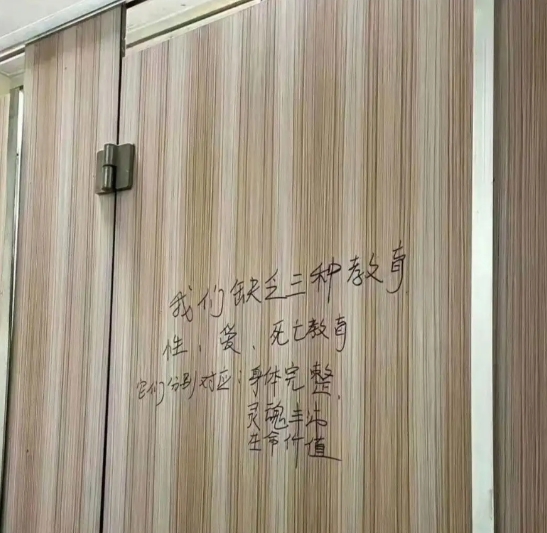 我们缺乏三种教育
性、爱、死亡教育
它们分别对应：身体完整、
灵魂丰沛
生命价值